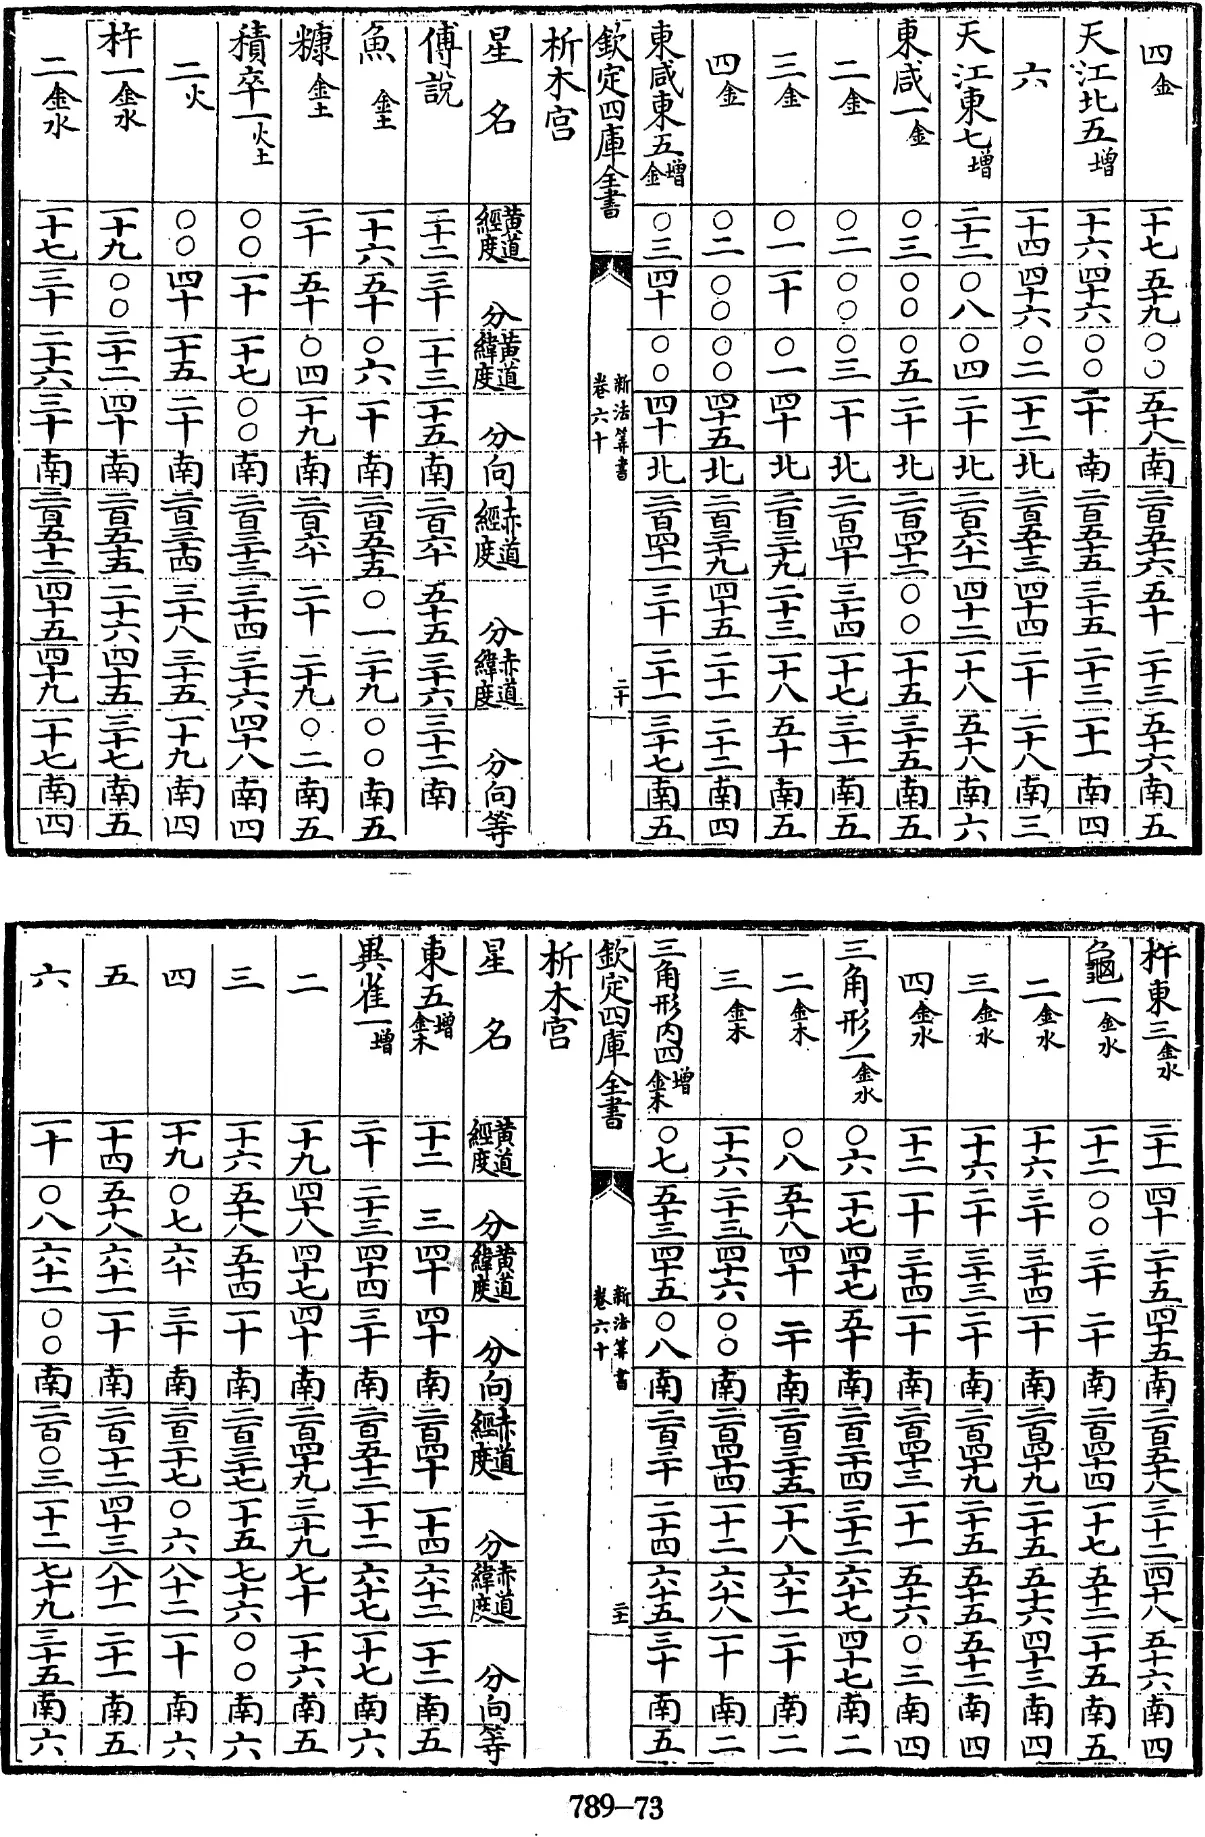 四金 一十七 五十九 〇〇 五十八 南 二百五十六 五十 二十三 五十六 南 五
天江北五增 一十六 四十六 〇〇 二十 南 二百五十五 三十五 二十三 一十一 南 四
六 一十四 四十六 〇二 一十二 北 二百五十三 四十四 二十 二十八 南 三
天江東七增 二十二 〇八 〇四 二十 北 二百六十一 四十二 一十八 五十八 南 六
東咸一金 〇三 〇〇 〇五 二十 北 二百四十二 〇〇 一十五 三十五 南 五
二金 〇二 〇〇 〇三 一十 北 二百四十 三十四 一十七 三十一 南 五
三金 〇一 一十 〇一 四十 北 二百三十九 二十三 一十八 五十 南 五
四金 〇二 〇〇 〇〇 四十五 北 二百三十九 四十五 二十一 二十二 南 四
東咸東五增金 〇三 四十 〇〇 四十 北 二百四十一 三十 二十一 三十七 南 五
欽定四庫全書 新法算書 卷六十 二十
析木宮
星名 黃道經度 分 黃道緯度 分 向 赤道經度 分 赤道緯度 分 向 等
傅說 二十二 三十 一十三 一十五 南 二百六十 五十五 三十六 三十二 南
魚金土 一十六 五十 〇六 一十 南 二百五十五 〇一 二十九 〇〇 南 五
糠金土 二十 五十 〇四 一十九 南 二百六十 二十 二十九 〇二 南 五
積卒一火土 〇〇 一十 一十七 〇〇 南 二百三十三 三十四 三十六 四十八 南 四
二火 〇〇 四十 一十五 二十 南 二百三十四 三十八 三十五 一十九 南 四
杵一金水 一十九 〇〇 二十二 四十 南 二百五十五 二十六 四十五 三十七 南 五
二金水 一十七 三十 二十六 三十 南 二百五十二 四十五 四十九 一十七 南 四
杵東三金水 二十一 四十 二十五 四十五 南 二百五十八 三十二 四十八 五十六 南 四
龜一金水 一十二 〇〇 三十 二十 南 二百四十四 一十七 五十二 二十五 南 五
二金水 一十六 三十 三十四 一十 南 二百四十九 二十五 五十六 四十三 南 四
三金水 一十六 二十 三十三 二十 南 二百四十九 二十五 五十五 五十二 南 四
四金水 一十二 一十 三十四 一十 南 二百四十三 一十一 五十六 〇三 南 四
三角形一金水 〇六 一十七 四十七 五十 南 二百二十四 三十二 六十七 四十七 南 二
二金木 〇八 五十八 四十 二十 南 二百三十五 一十八 六十一 二十 南 二
三金木 一十六 二十三 四十六 〇〇 南 二百四十四 一十二 六十八 一十 南 二
三角形內四增金木 〇七 五十三 四十五 〇八 南 二百三十 二十四 六十五 三十 南 五
欽定四庫全書 新法算書 卷六十 二十一
析木宮
星名 黃道經度 分 黃道緯度 分 向 赤道經度 分 赤道緯度 分 向 等
東五增金木 一十二 三 四十 四十 南 二百四十 一十四 六十二 一十二 南 五
異雀一增 二十 二十三 四十四 三十 南 二百五十三 一十二 六十七 一十七 南 六
二 一十九 四十八 四十七 四十 南 二百四十九 三十九 七十 一十六 南 五
三 一十六 五十八 五十四 一十 南 二百三十七 一十五 七十六 〇〇 南 六
四 一十九 〇七 六十 三十 南 二百二十七 〇六 八十二 一十 南 六
五 一十四 五十八 六十一 一十 南 二百一十二 四十三 八十一 二十一 南 五
六 一十 〇八 六十一 〇〇 南 二百〇三 一十二 七十九 三十五 南 六
789-73